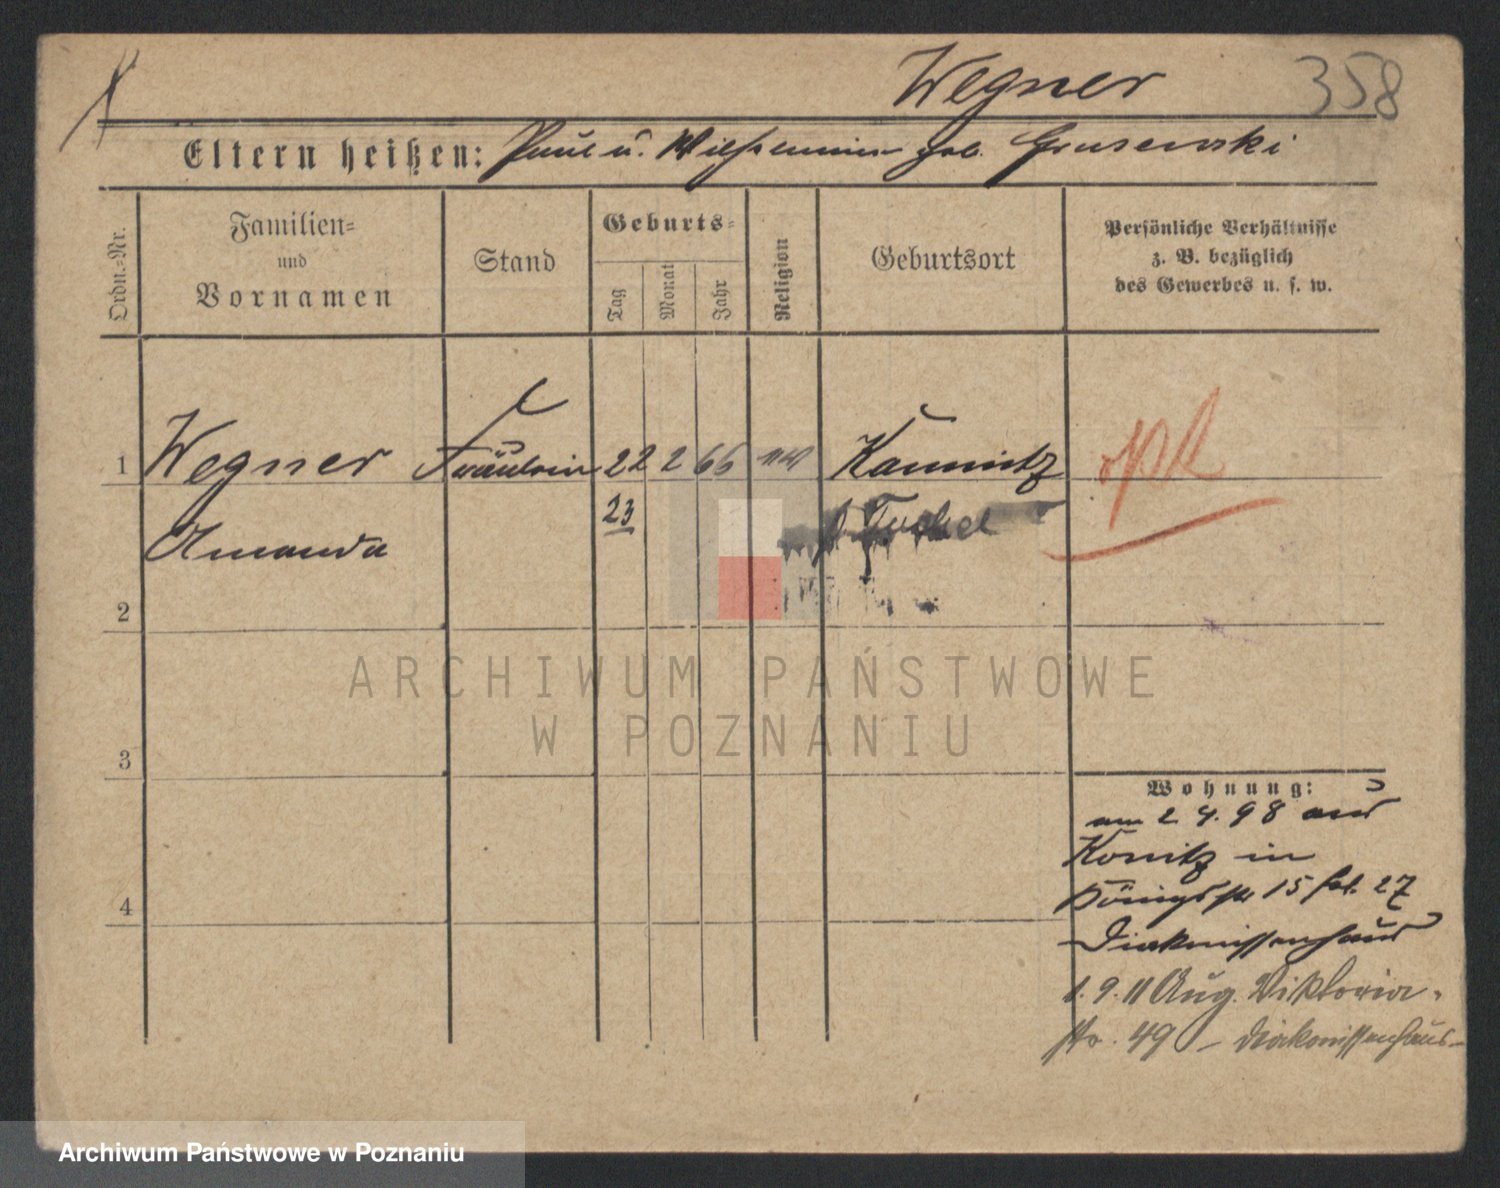 Wegner 358
Eltern heißen: Paul u. Wilhelmine geb. Grusewski
Ordn.-Nr.
Familien-
und
Vornamen
Stand
Geburts-
Tag
Monat
Jahr
Religion
Geburtsort
Persönliche Verhältnisse
z. B. bezüglich
des Gewerbes u. s. w.
1 Wegner Fräulein 22 2 66 Kamnitz
23 Tuchel
Amanda
2
3
4
Wohnung:
am 2 4. 98 aus
Konitz in
Königsstr 15 27
Diakonissenhaus
1. 9. 11 Aug. Viktoria-
str. 49 - Diakonissenhaus
ARCHIWUM PAŃSTWOWE
W POZNANIU
Archiwum Państwowe w Poznaniu